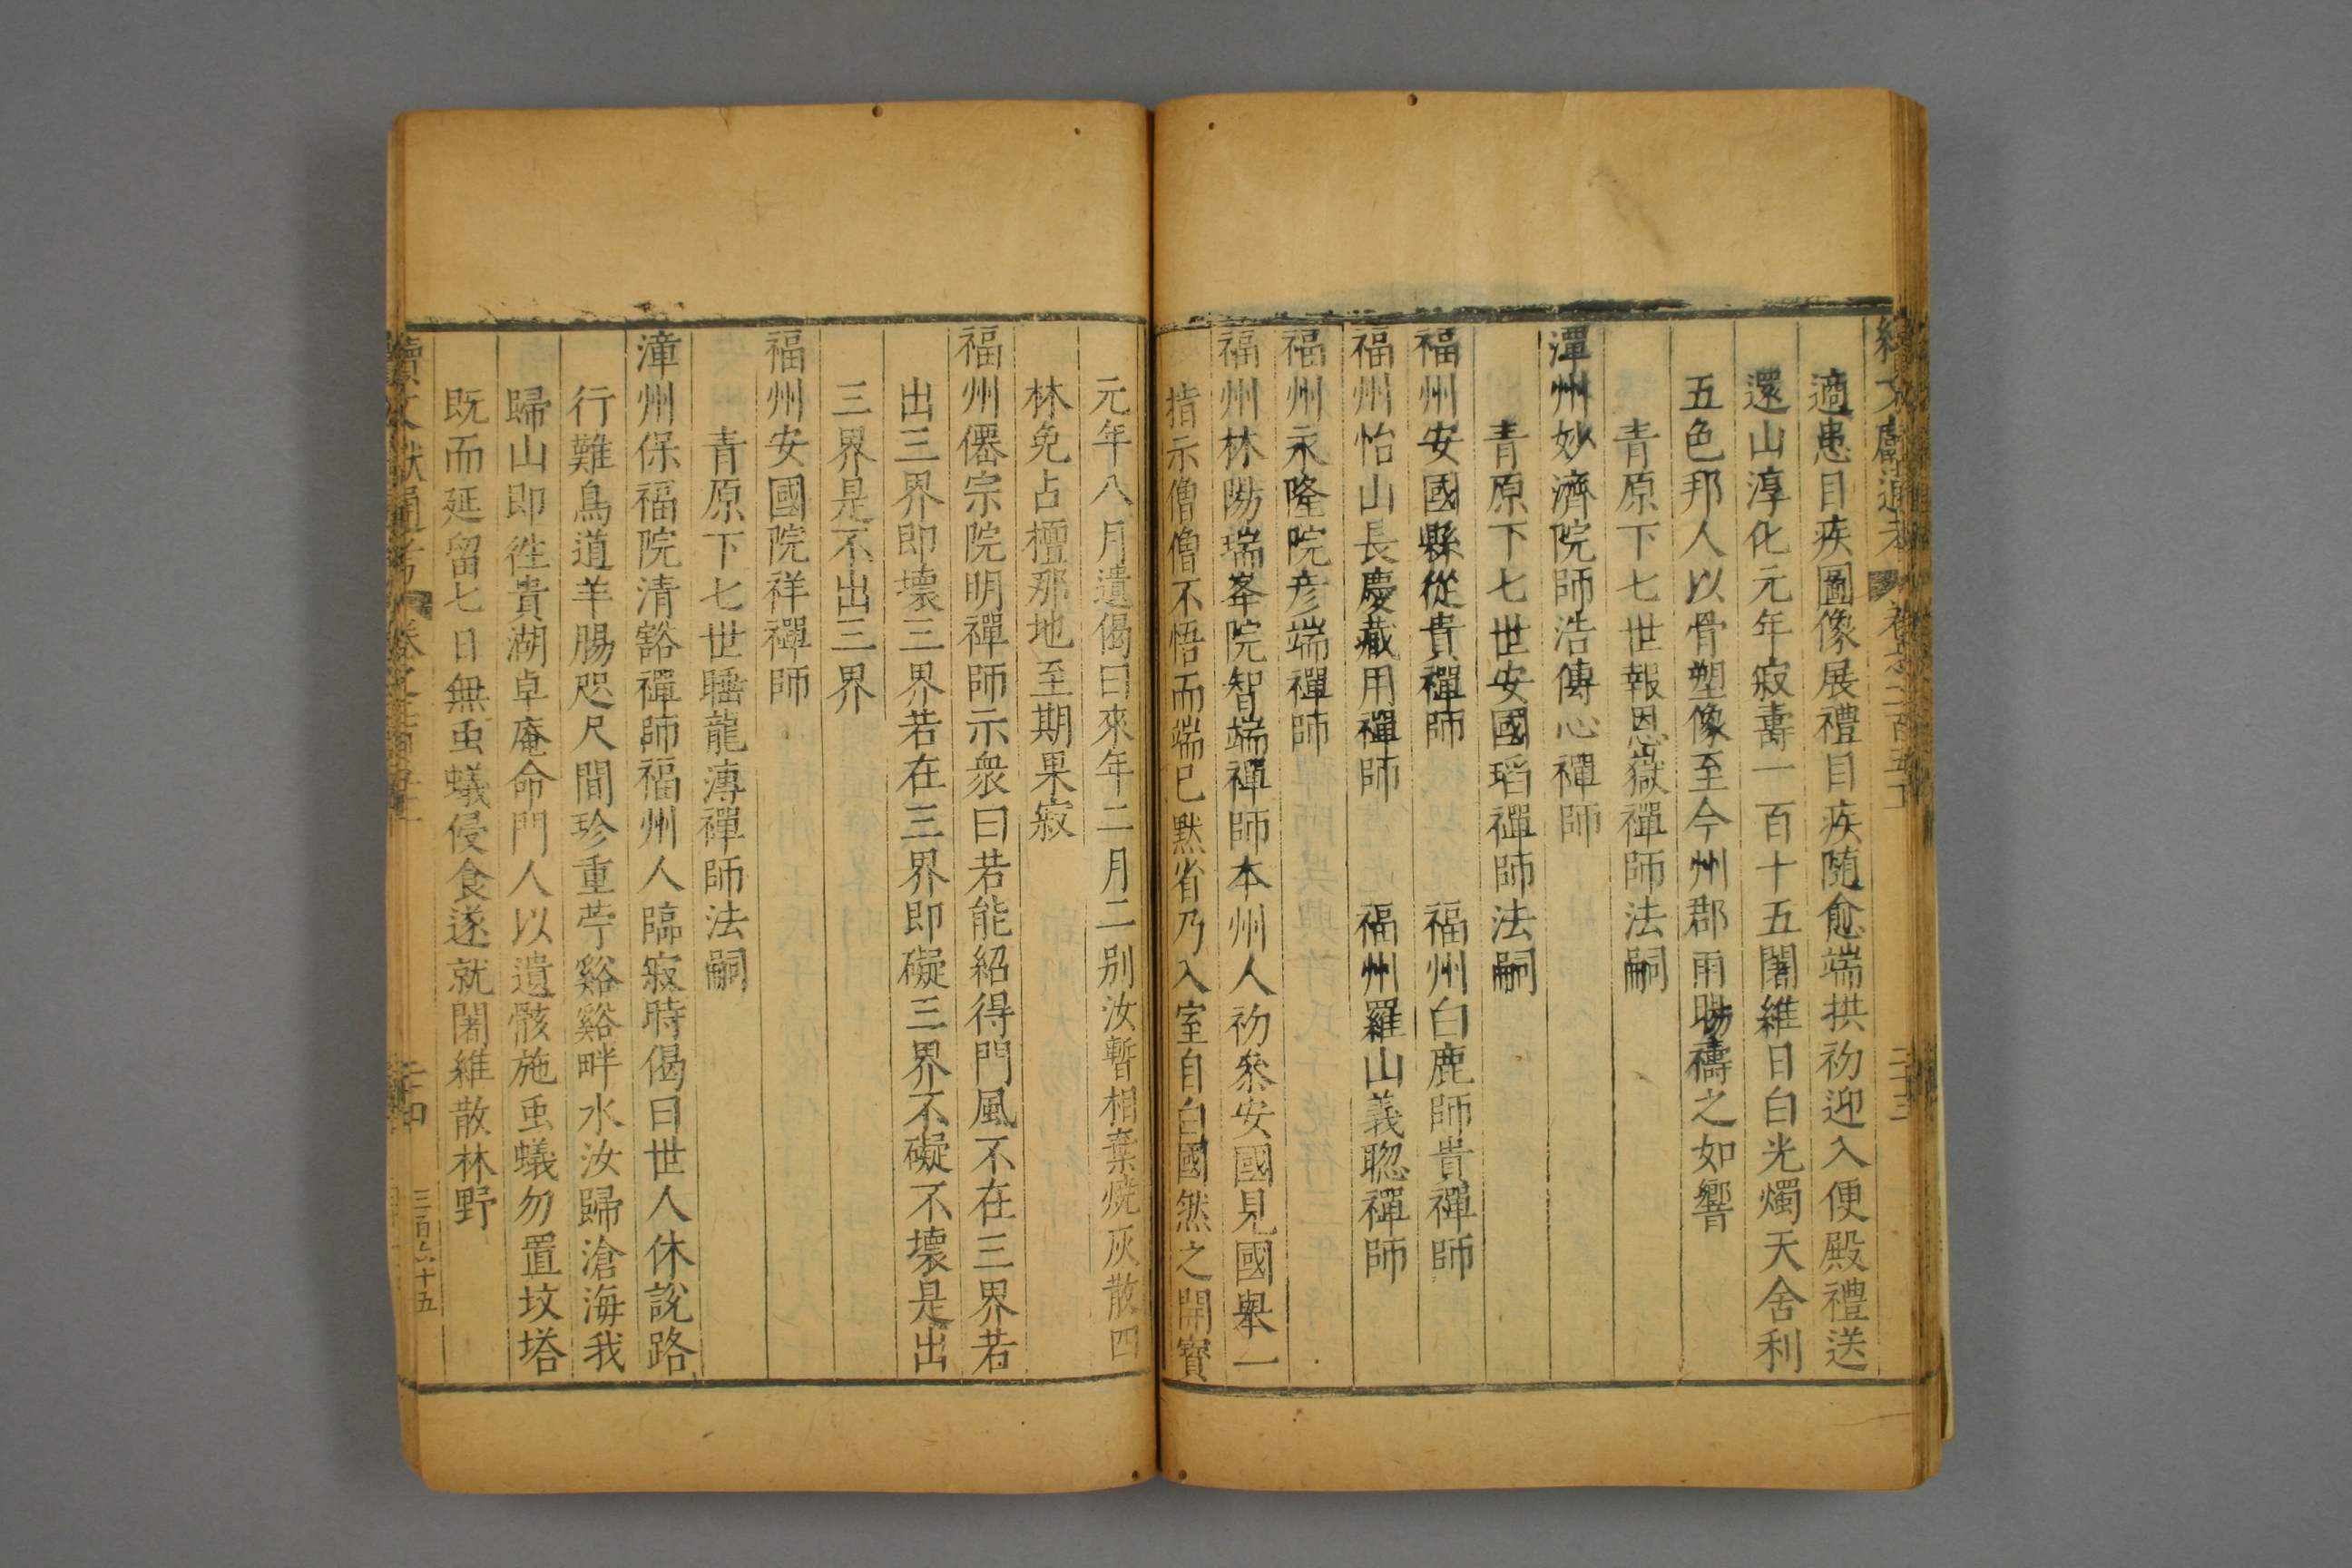 適患目疾圖像展禮目疾随愈端拱初迎入便殿禮送
還山淳化元年寂壽一百十五闍維日白光燭天舍利
五色邦人以骨塑像至今州郡雨暘禱之如響
青原下七世報恩嶽禪師法嗣
潭州妙濟院師浩傳心禪師
青原下七世安國瑫禪師法嗣
福州安國縣從貴禪師　福州白鹿師貴禪師
福州怡山長慶藏用禪師　福州羅山義聰禪師
福州永隆院彦端禪師
福州林陽瑞峯院智端禪師本州人初叅安國見國舉一
指示僧僧不悟而端已默省乃入室自白國然之開寳
元年八月遺偈曰來年二月二别汝暫相棄燒灰散四
林免占檀那地至期果寂
福州僊宗院明禪師示衆曰若能紹得門風不在三界若
出三界即壊三界若在三界即礙三界不礙不壊是出
三界是不出三界
福州安國院祥禪師
青原下七世睡龍溥禪師法嗣
漳州保福院清豁禪師福州人臨寂時偈曰世人休說路
行難鳥道羊腸咫尺間珍重苧谿谿畔水汝歸滄海我
歸山即徃貴湖卓庵命門人以遺骸施虫蟻勿置坟塔
既而延留七日無虫蟻侵食遂就闍維散林野
三百六十五